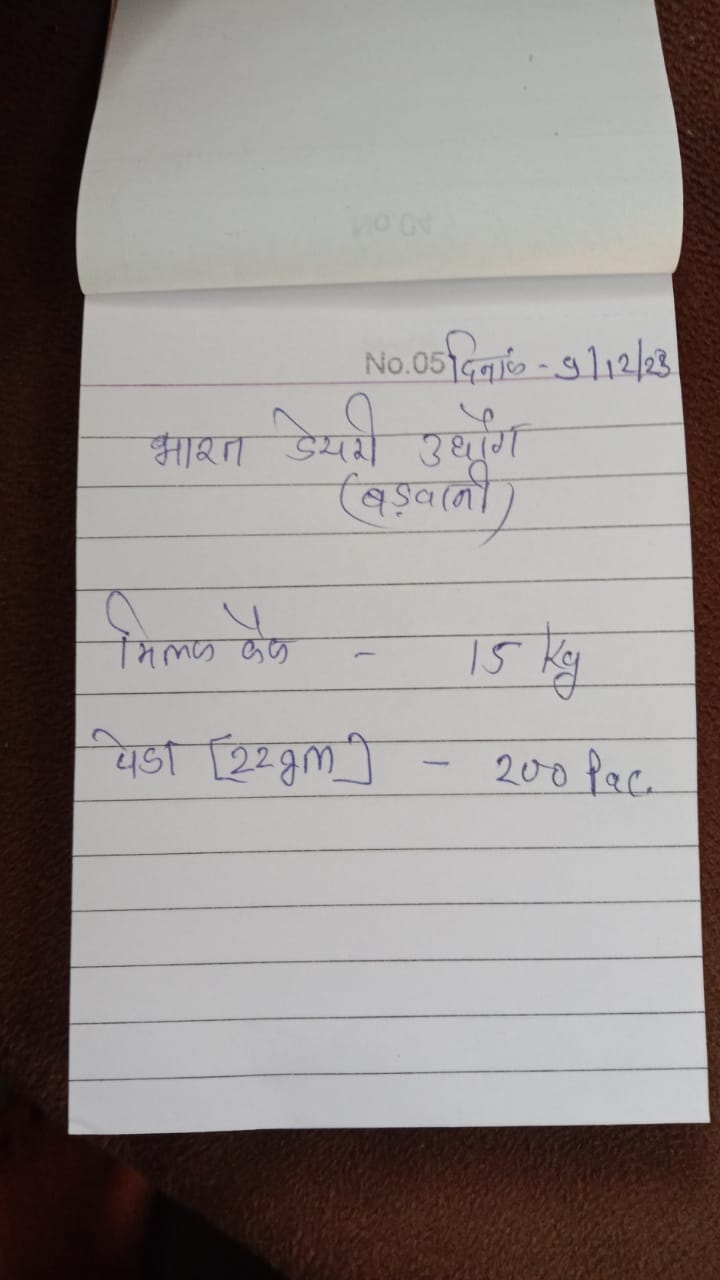 No.04
No.05 दिनांक - 9/12/23
भारत डेयरी उधौग
(बड़वानी)
मिल्क कैक - 15 kg
पेडा [22gm] - 200 Pac.